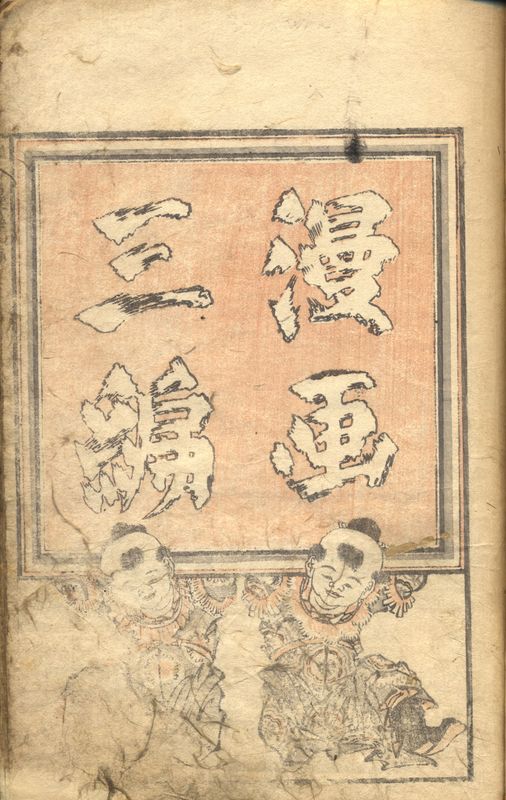 漫画
三編